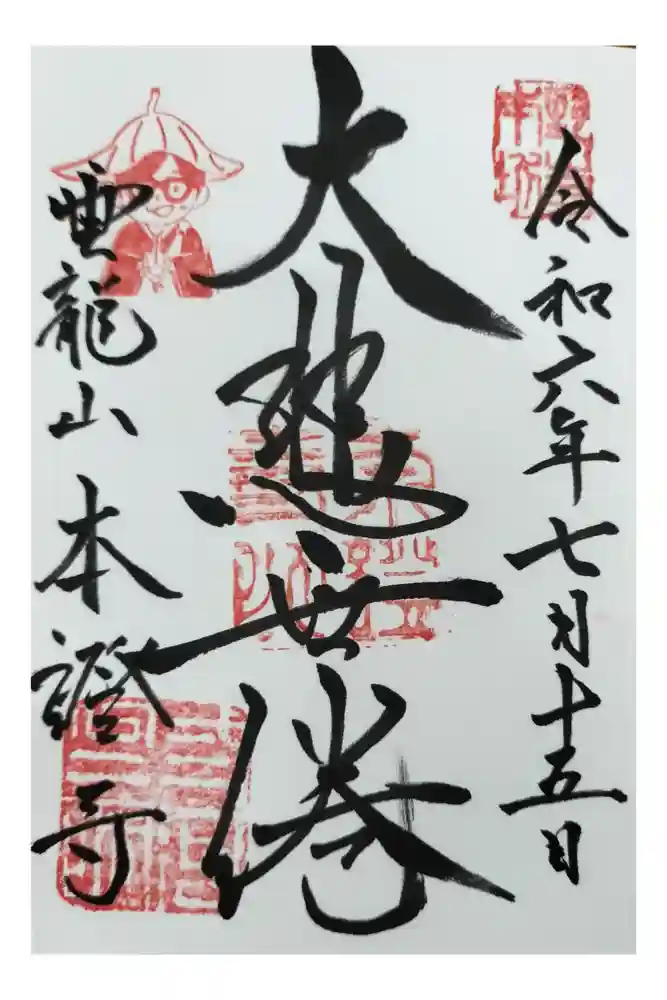 令和六年七月十五日
大悲無倦
雲龍山本證寺